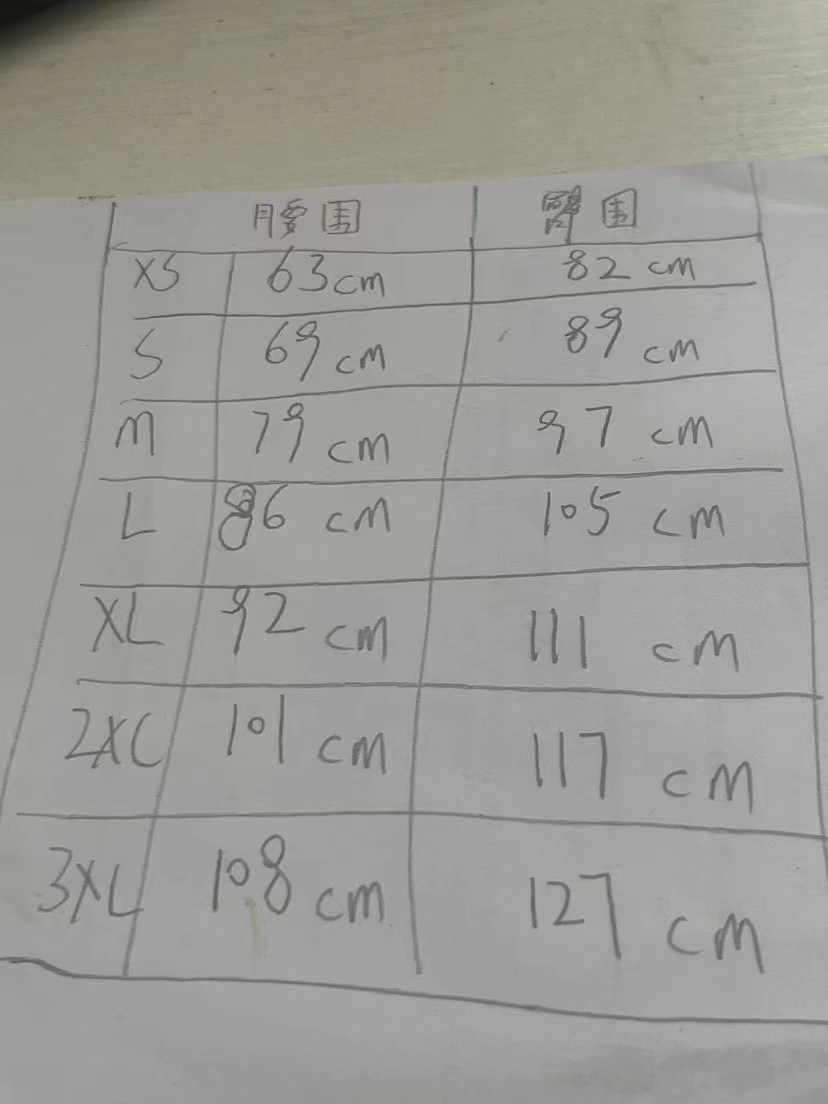 腰围 臀围
XS 63cm 82cm
S 69cm 89cm
M 79cm 97cm
L 86cm 105cm
XL 92cm 111cm
2XL 101cm 117cm
3XL 108cm 127cm